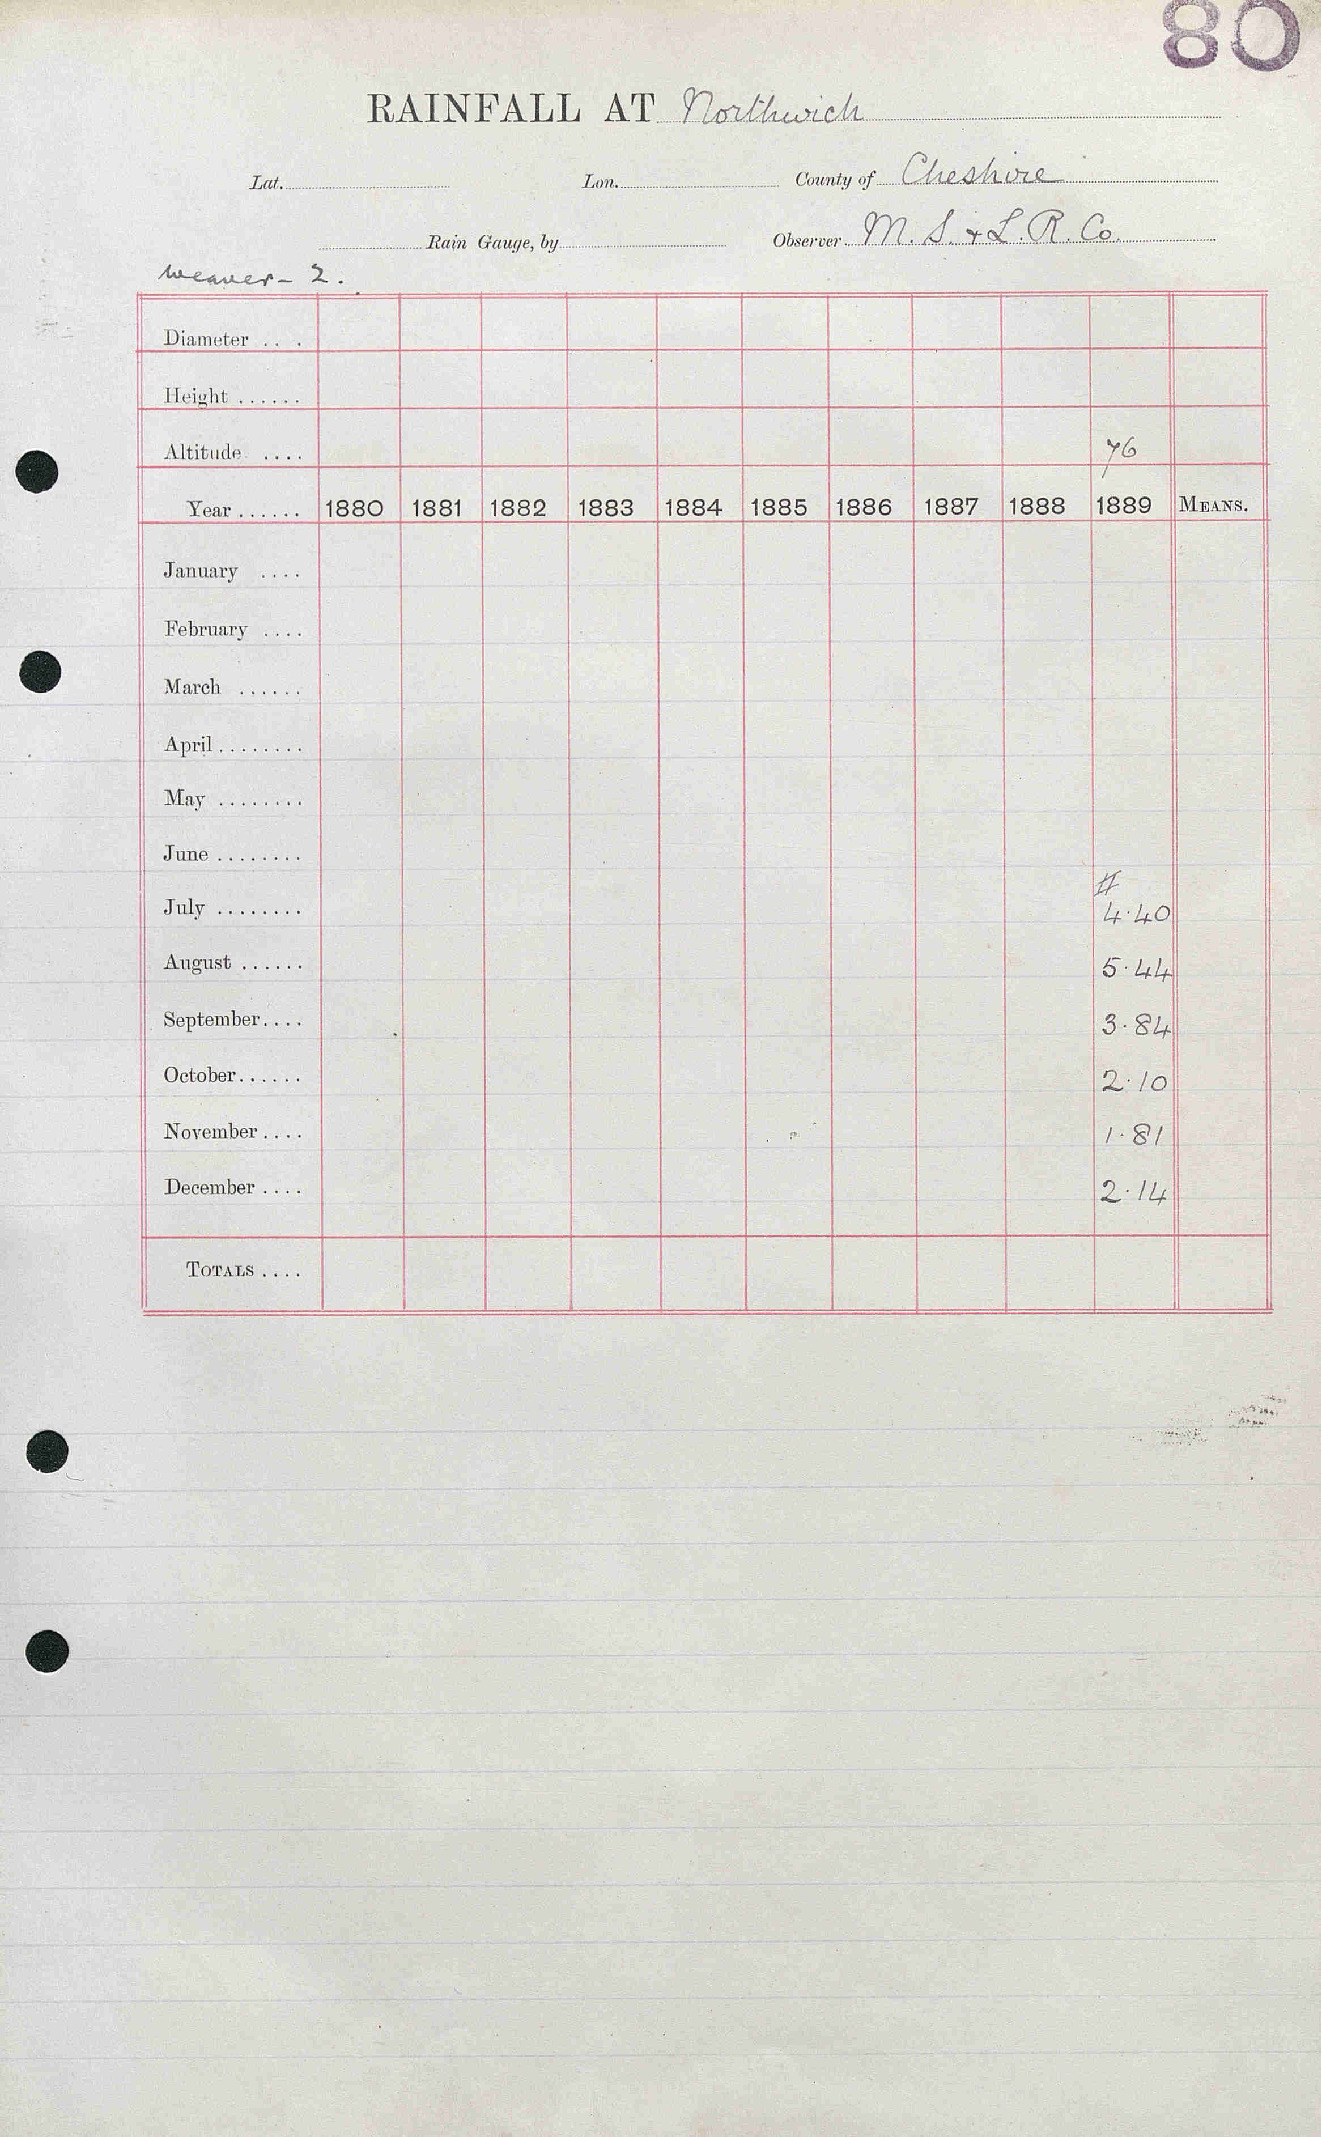 80
RAINFALL AT Northwich
Lat. Lon. County of Cheshire
Rain Gauge, by Observer M. S. & L. R. Co.
Weaver - 2.
Diameter ....
Height ......
Altitude .... 76
Year ...... 1880 1881 1882 1883 1884 1885 1886 1887 1888 1889 MEANS.
January ....
February ....
March ......
April ........
May ........
June ........
#
July ........ 4.40
August ...... 5.44
September .... 3.84
October ...... 2.10
November .... 1.81
December .... 2.14
TOTALS ....